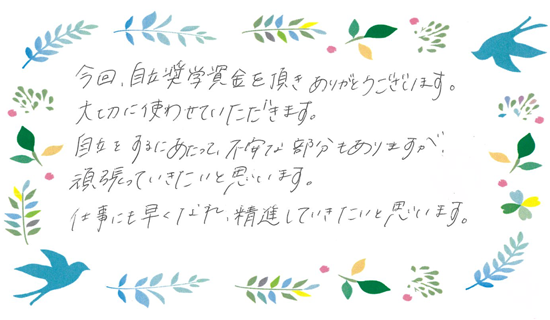 今回、自立奨学資金を頂きありがとうございます。
大切に使わせていただきます。
自立をするにあたって、不安な部分もありますが、
頑張っていきたいと思います。
仕事にも早くなれ、精進していきたいと思います。